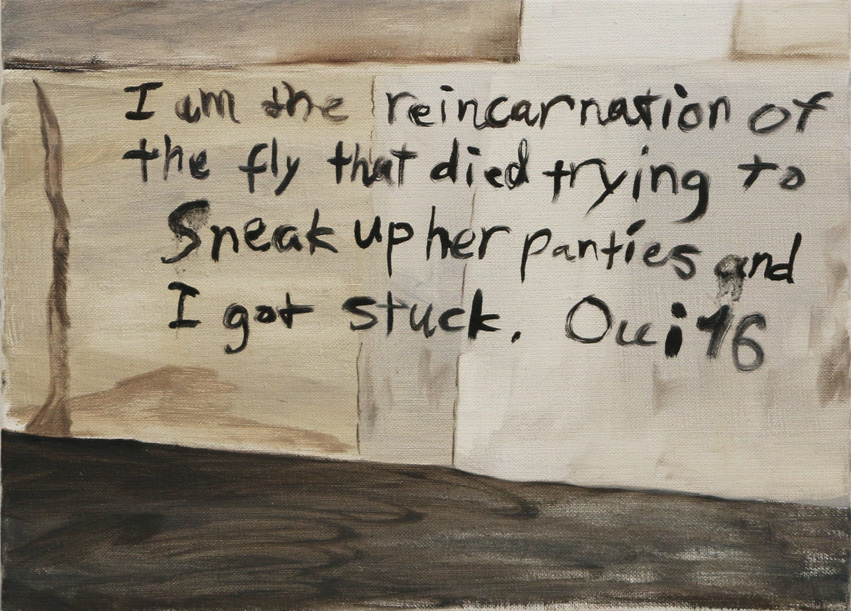 I am the reincarnation of
the fly that died trying to
Sneak up her panties and
I got stuck. Oui 16